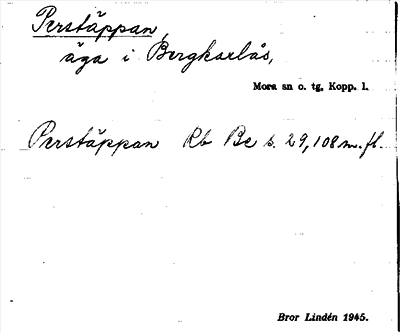 Perstäppan,
äga i Bergkarlås,
Mora sn o. tg, Kopp. l.
Perstäppan Rb Be s. 29, 108 m. fl.
Bror Lindén 1945.